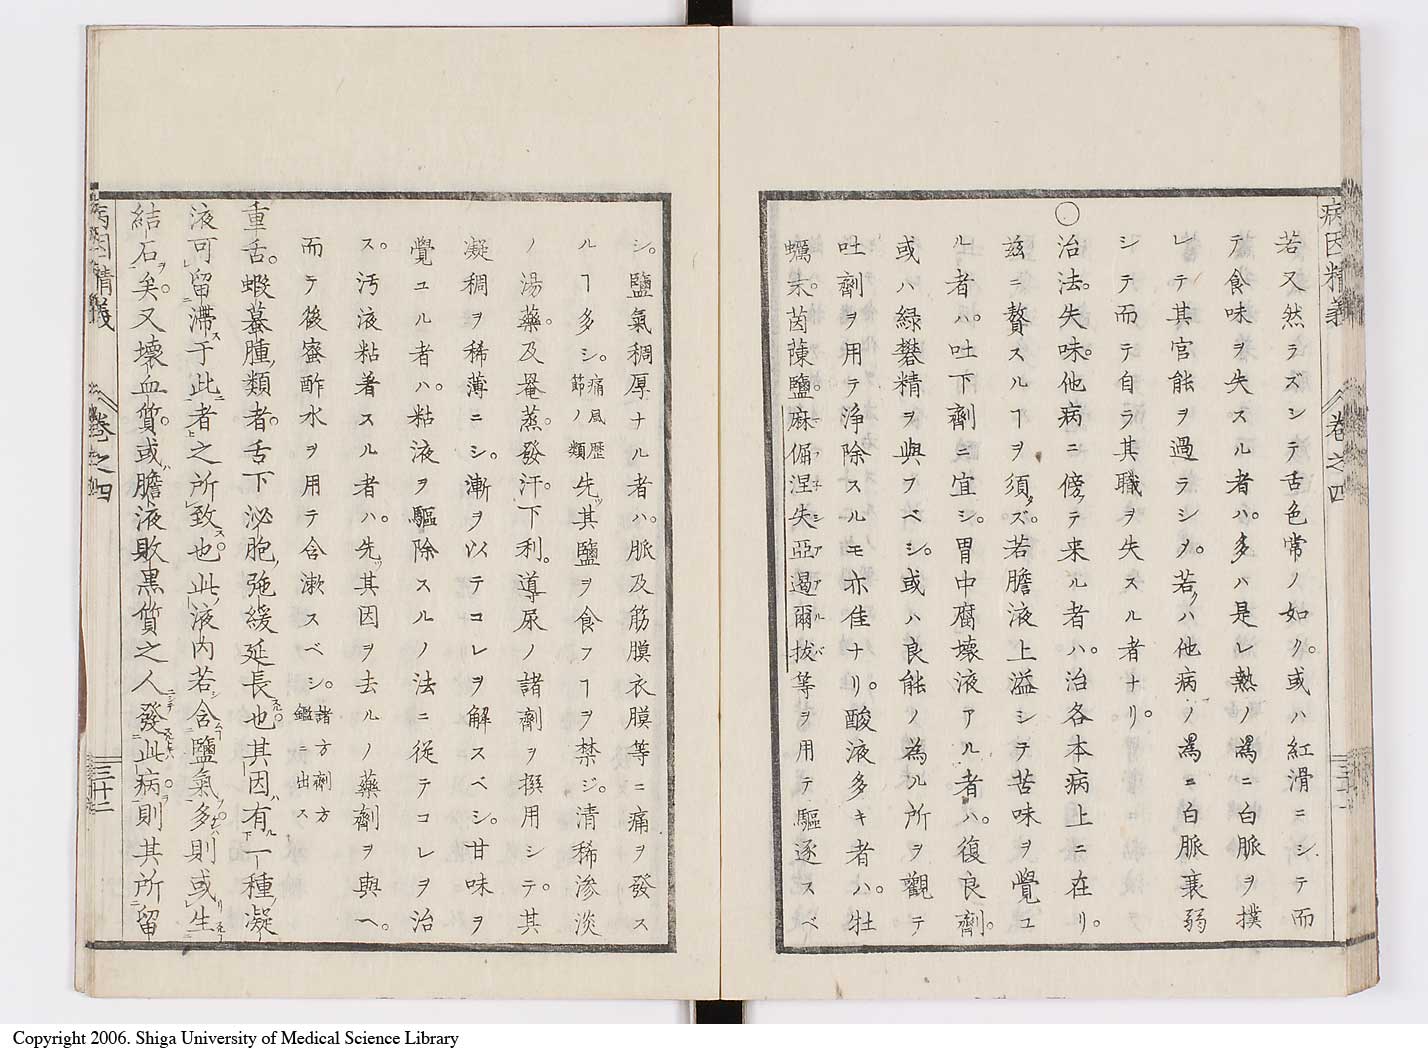 病因精義 巻之四
若又然ラズシテ舌色常ノ如ク。或ハ紅滑ニシテ而
テ食味ヲ失スル者ハ。多ハ是レ熱ノ為ニ白脈ヲ撲
レテ其官能ヲ過ラシメ。若クハ他病ノ為ニ白脈衰弱
シテ而テ自ラ其職ヲ失スル者ナリ。
○治法。失味。他病ニ傍テ来ル者ハ。治各本病上ニ在リ。
茲ニ贅スルヿヲ須ズ。若膽液上溢シテ苦味ヲ覺ユ
ル者ハ。吐下劑ニ宜シ。胃中腐壊液アル者ハ。復良劑。
或ハ緑礬精ヲ與フベシ。或ハ良能ノ為ル所ヲ觀テ
吐劑ヲ用テ浄除スルモ亦佳ナリ。酸液多キ者ハ。牡
蠣末。茵蔯鹽。麻倔涅失亞遏爾拔等ヲ用テ驅逐スベ
シ。鹽氣稠厚ナル者ハ。脈及筋膜衣膜等ニ痛ヲ發ス
ルヿ多シ。痛風歴節ノ類先ツ其鹽ヲ食フヿヲ禁ジ。清稀滲淡
ノ湯藥。及罨蒸。發汗。下利。導尿ノ諸劑ヲ撰用シテ。其
凝稠ヲ稀薄ニシ。漸ヲ以テコレヲ解スベシ。甘味ヲ
覺ユル者ハ。粘液ヲ驅除スルノ法ニ従テコレヲ治
ス。汚液粘着スル者ハ。先ツ其因ヲ去ルノ藥劑ヲ與ヘ。
而テ後蜜酢水ヲ用テ含漱スベシ。諸方劑方鑑ニ出ス
重舌。蝦蟇腫ノ類者。舌下泌胞ノ弛緩延長也。其因有一種ノ凝
液可留滞于此者之所致也。此液内若含鹽氣多則或生
結石矣。又壊血質。或膽液敗黒質之人。發此病則其所留
病因精義 巻之四 三十二